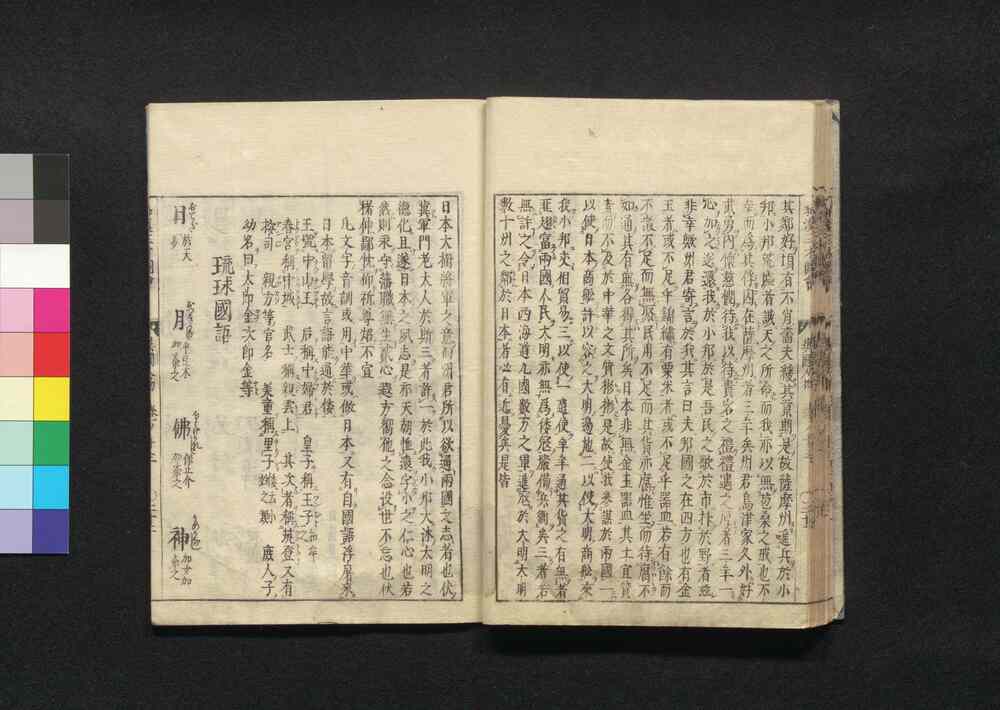 其鄰好頃有不肖嗇夫緩其貢期是故薩摩州進兵於小
邦小邦荒墟者誠天之所命而我亦以無苞桑之戒也不
幸而為其俘囚在薩摩州者三年矣州君島津家久外好
武勇內懷慈憫待我以待貴客之禮禮遇之厚者三年一
心加之送還我於小邦於是吾民之歌於市抃於野者茲
非幸歟州君寄言於我其言曰夫邦國之在四方也有金
玉者或不足乎錦繡有粟米者或不足乎器皿若有餘而
不散不足而無聚民用不足而其貨亦腐惟坐而待腐不
如通其有無各得其所矣日本非無金玉器皿其土宜質
素而不及於中華之文質彬彬是故使我來謀於兩國一
以使日本商舶許以容之大明邊地二以使大明商舶來
我小邦交相貿易三以使一遣使年年通其貨之有無者
匪翅富兩國人民大明亦無為倭寇嚴備兵衛矣三者若
無許之令日本西海道九國數萬之軍進寇於大明大明
數十州之鄰於日本者必有近憂矣是皆
日本大樹將軍之意而州君所以欲通兩國之志者也伏
冀軍門老大人於斯三者許一於此我小邦大沐太明之
德化且遂日本之夙志是亦天朝惟懷字小之仁心也若
然則永守藩職無生貳心遠方禦他之念設世不忘也伏
楮仲鄙忱仰祈尊炤不宣
凡文字音訓或用中華或倣日本又有自國語浮屠來
日本留學故言語能通於倭
王號中山王 后稱中婦君 皇子稱王子
春宮稱中城 武士稱親雲上 其次者稱筑登又有
掟司 親方等官名 美童稱里子 庶人子
幼名曰太郎金次郎金等
琉球國語
日 於天
月
佛
神